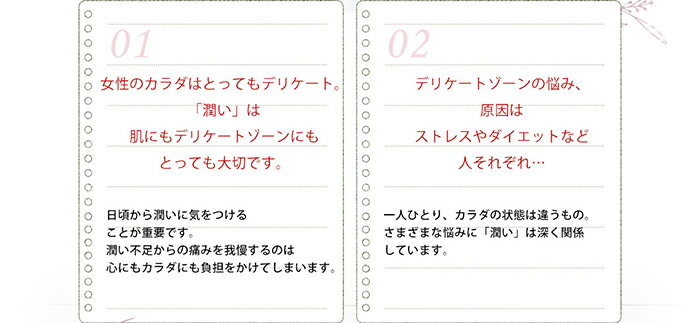 01
女性のカラダはとってもデリケート。
「潤い」は
肌にもデリケートゾーンにも
とっても大切です。
日頃から潤いに気をつける
ことが重要です。
潤い不足からの痛みを我慢するのは
心にもカラダにも負担をかけてしまいます。
02
デリケートゾーンの悩み、
原因は
ストレスやダイエットなど
人それぞれ…
一人ひとり、カラダの状態は違うもの。
さまざまな悩みに「潤い」は深く関係
しています。